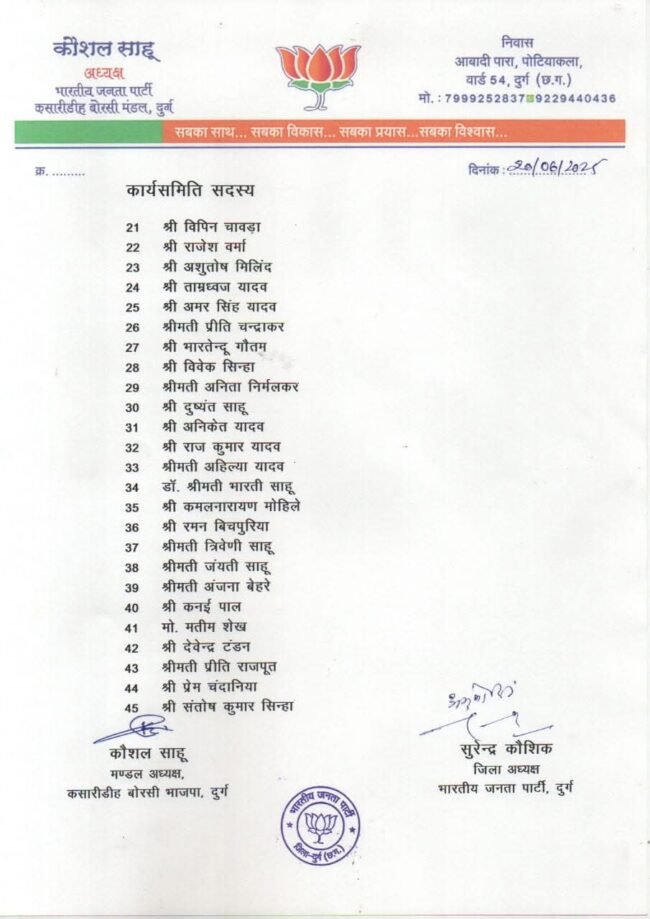 कौशल साहू
अध्यक्ष
भारतीय जनता पार्टी
कसारीडीह बोरसी मंडल, दुर्ग
निवास
आबादी पारा, पोटियाकला,
वार्ड 54, दुर्ग (छ.ग.)
मो. : 7999252837 9229440436
सबका साथ... सबका विकास... सबका प्रयास...सबका विश्वास...
क्र. .........
दिनांक : 20/06/2025
कार्यसमिति सदस्य
21 श्री विपिन चावड़ा
22 श्री राजेश वर्मा
23 श्री अशुतोष मिलिंद
24 श्री ताम्रध्वज यादव
25 श्री अमर सिंह यादव
26 श्रीमती प्रीति चन्द्राकर
27 श्री भारतेन्दू गौतम
28 श्री विवेक सिन्हा
29 श्रीमती अनिता निर्मलकर
30 श्री दुष्यंत साहू
31 श्री अनिकेत यादव
32 श्री राज कुमार यादव
33 श्रीमती अहिल्या यादव
34 डॉ. श्रीमती भारती साहू
35 श्री कमलनारायण मोहिले
36 श्री रमन बिचपुरिया
37 श्रीमती त्रिवेणी साहू
38 श्रीमती जंयती साहू
39 श्रीमती अंजना बेहरे
40 श्री कनई पाल
41 मो. मतीम शेख
42 श्री देवेन्द्र टंडन
43 श्रीमती प्रीति राजपूत
44 श्री प्रेम चंदानिया
45 श्री संतोष कुमार सिन्हा
कौशल साहू
मण्डल अध्यक्ष,
कसारीडीह बोरसी भाजपा, दुर्ग
सुरेन्द्र कौशिक
जिला अध्यक्ष
भारतीय जनता पार्टी, दुर्ग
भारतीय जनता पार्टी
जिला-दुर्ग (छ.ग.)